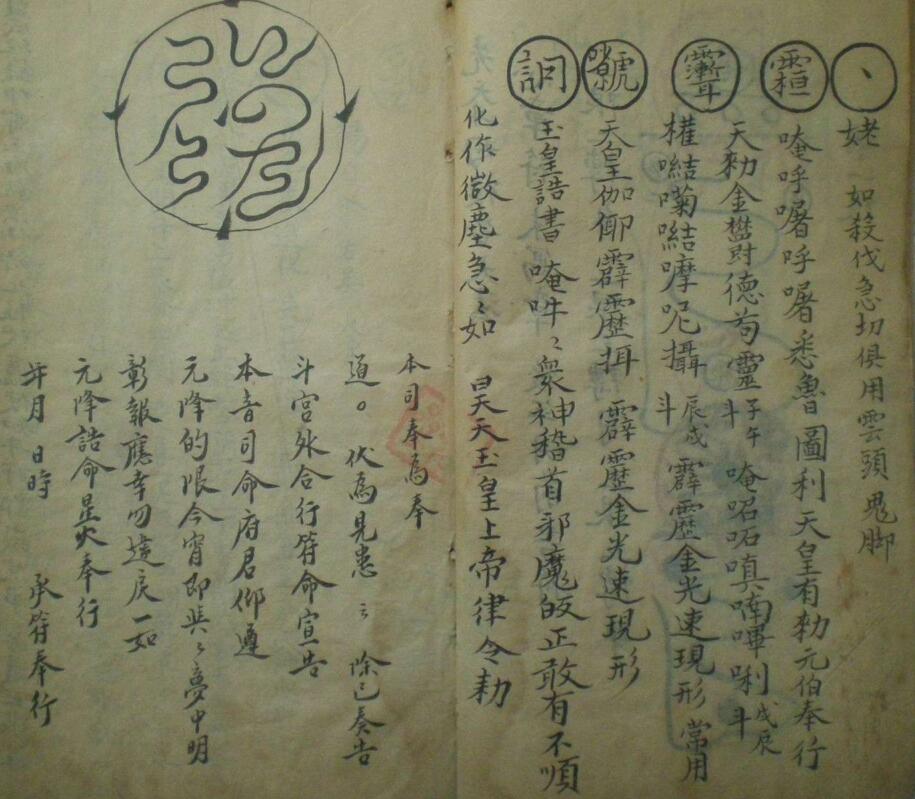 丶 姥 如殺伐急切俱用雲頭鬼脚
唵呼囑呼囑悉魯圖利天皇有勑元伯奉行
天勑金 德 靈 子午斗 唵 㖠嗶唎 戌辰斗
㩲㗌 㗌摩尼攝 辰戌斗 霹靂金光速現形 常用
天皇伽 霹靂揖 霹靂金光速現形
玉皇誥書 唵吽〻衆神稽首邪魔皈正敢有不順
化作微塵急〻如 昊天玉皇上帝律令勑
本司奉爲奉
道○ 伏爲見患〻 除已奏告
斗宮外合行符命宣告
本音司命府君仰遵
元降的限今宵即與〻夢中明
彰報應幸勿違戾一如
元降誥命星火奉行
年月日時 承符奉行